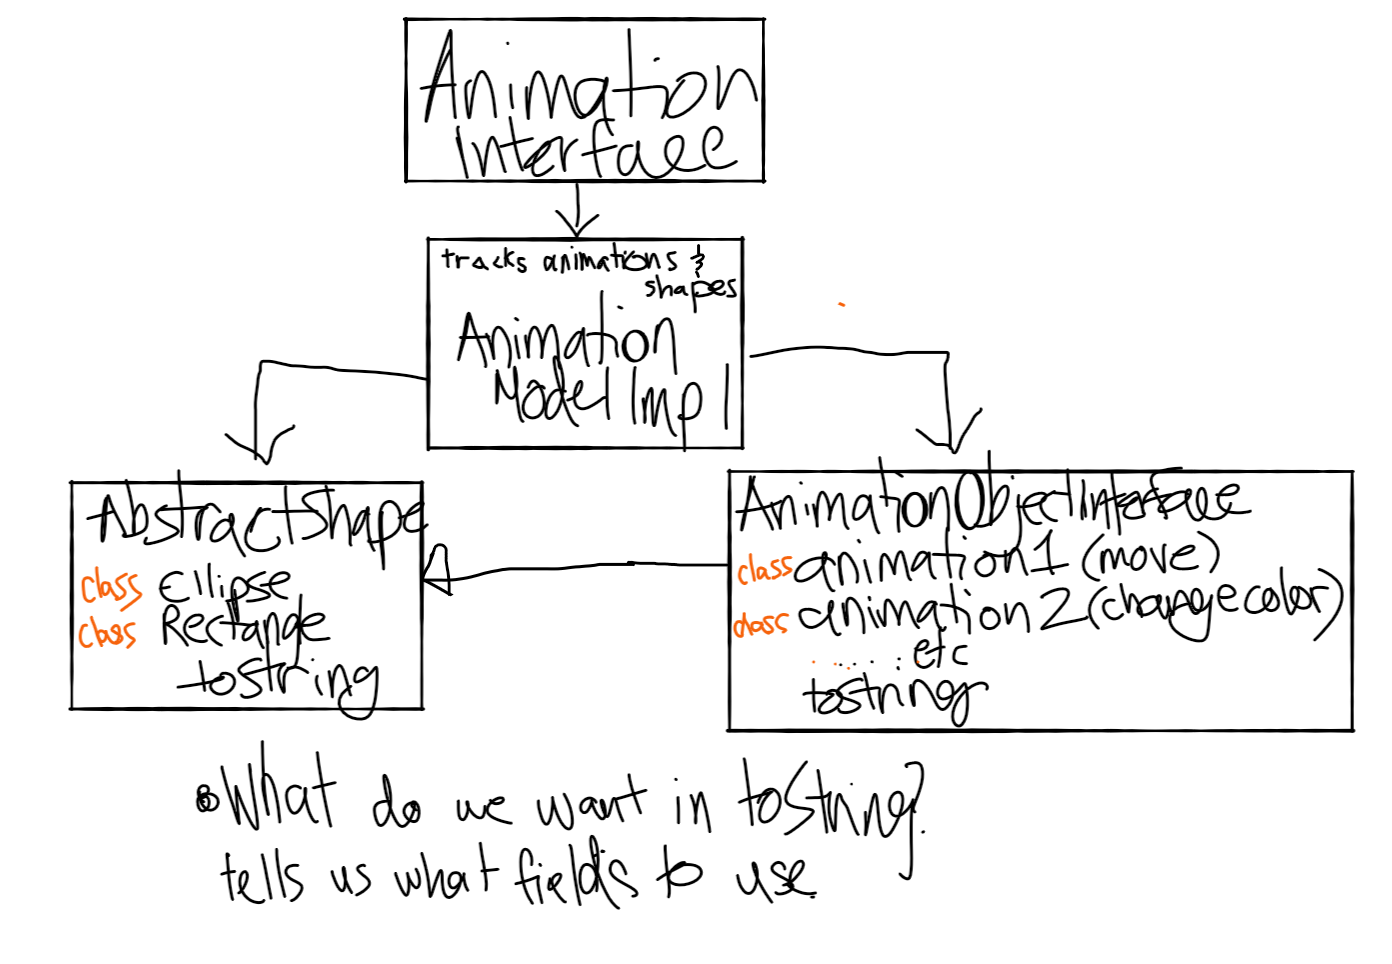 Animation
Interface
tracks animations &
shapes
Animation
Model Impl
AbstractShape
class Ellipse
class Rectangle
toString
AnimationObjectInterface
class animation1 (move)
class animation2 (change color)
...... : etc
tostring
• What do we want in toString?
tells us what fields to use